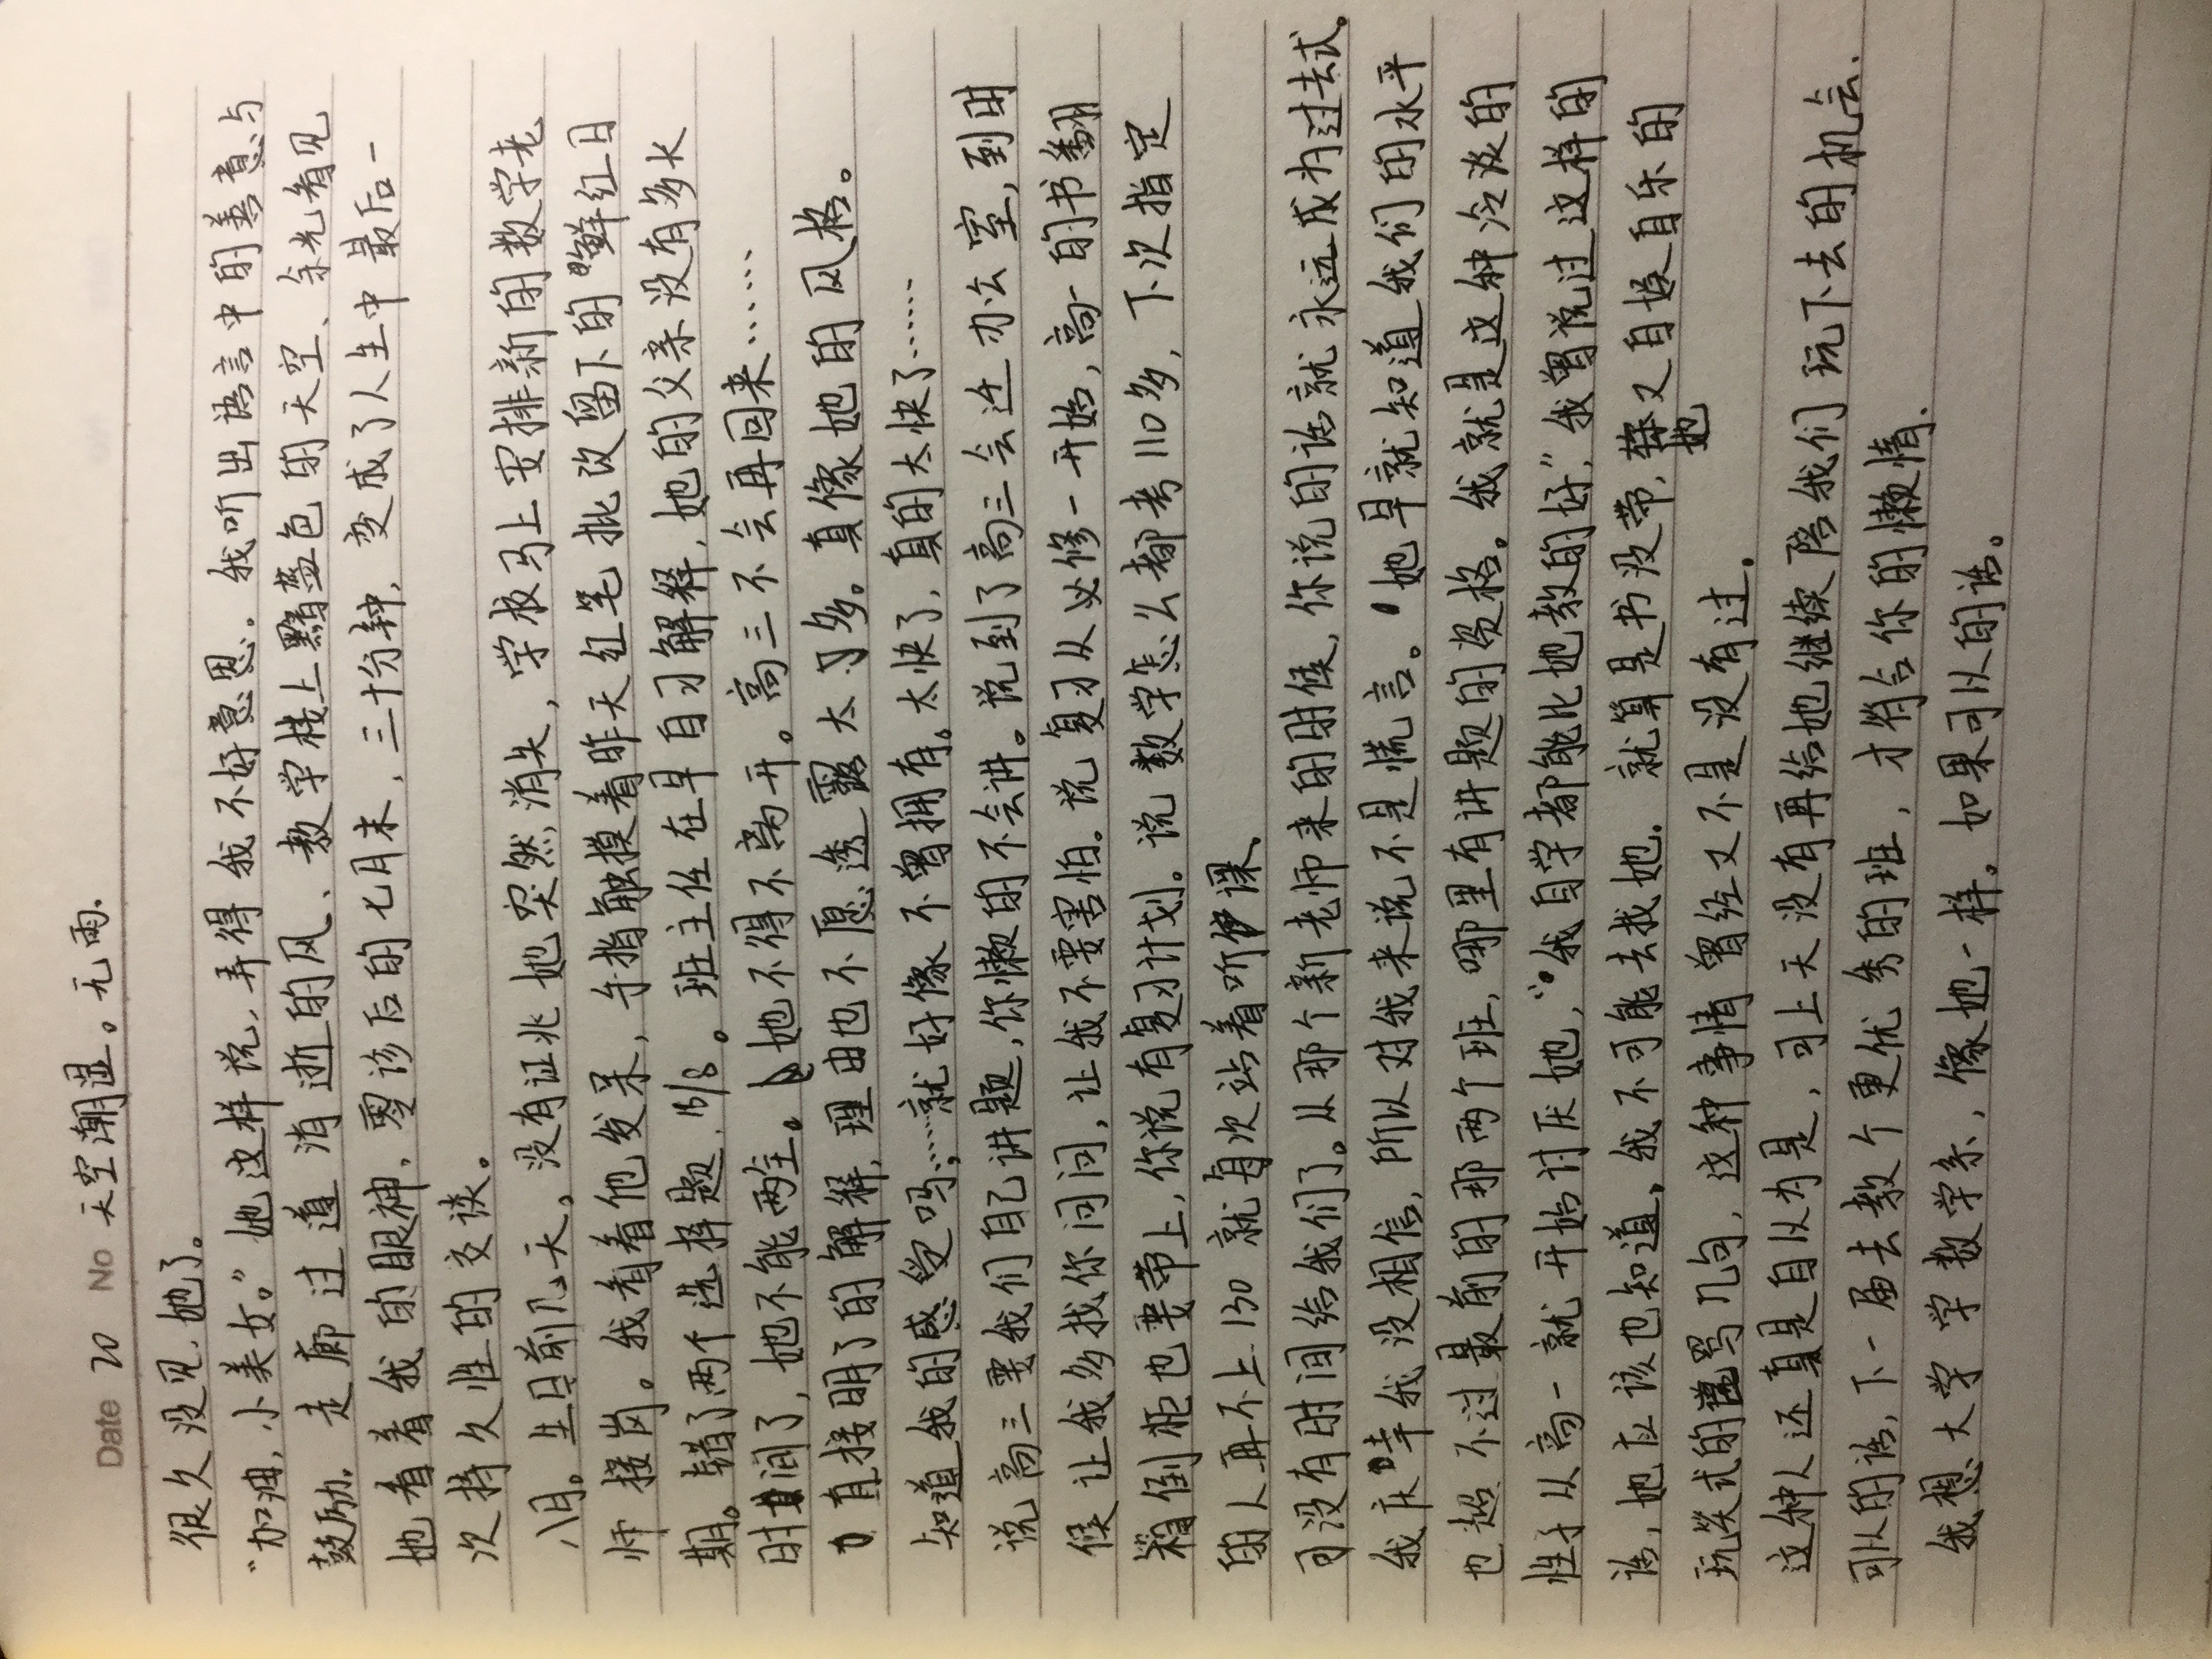 Date 20 No 天空潮湿。无雨.
很久没见.她了。
“加油,小美女。”她这样说,弄得我不好意思.我听出语言中的善意与
鼓励.走廊过道消逝的风、教学楼上黯蓝色的天空、余光看见
她看着我的眼神,零该后的七月末,三十分钟,变成了人生中最后一
次持久性的交谈。
八月。生日前几天。没有证兆她突然消失,学校马上安排新的数学老
师接岗。我看着他发呆,手指触摸着昨天红笔批改留下的鲜红日
期。错了两个选择题,13/8。班主任在早自习解释,她的父亲没有多长
时间了,她不能两全。她不得不离开。高三不会再回来……
直接明了的解释,理由也不愿透露太多。真像她的风格。
知道我的感受吗;……就好像不曾拥有。太快了,真的太快了……
说高三要我们自己讲题,你懒的不会讲。说到了高三会近办公室,到时
候让我多找你问问,让我不要害怕。说复习从必修一开始,高一的书翻
箱倒柜也要带上,你说有复习计划。说数学怎么都考110多,下次指定
的人再不上130就每次站着听课.
可没有时间给我们了。从那个新老师来的时候,你说的话就永远成为过去式.
我庆幸我没相信,所以对我来说不是慌言。她早就知道我们的水平
也超不过最前的那两个班,哪里有讲题的资格。我就是这种冷淡的
性子从高一就开始讨厌她,“我自学都能比她教的好,”我曾说过这样的
话,她应该也知道,我不可能去找她.就算是书没带,她又自娱自乐的
玩笑式的谩骂几句,这种事情曾经又不是没有过.
这种人还真是自以为是,可上天没有再给她继续陪我们玩下去的机会.
可以的话,下一届去教个更优秀的班,才符合你的懒惰.
我想大学学数学系,像她一样。如果可以的话。